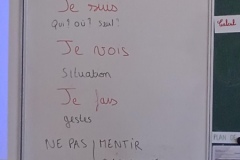 Je suis
qui? où? seul?
Je vois
situation
Je fais
gestes
NE PAS MENTIR